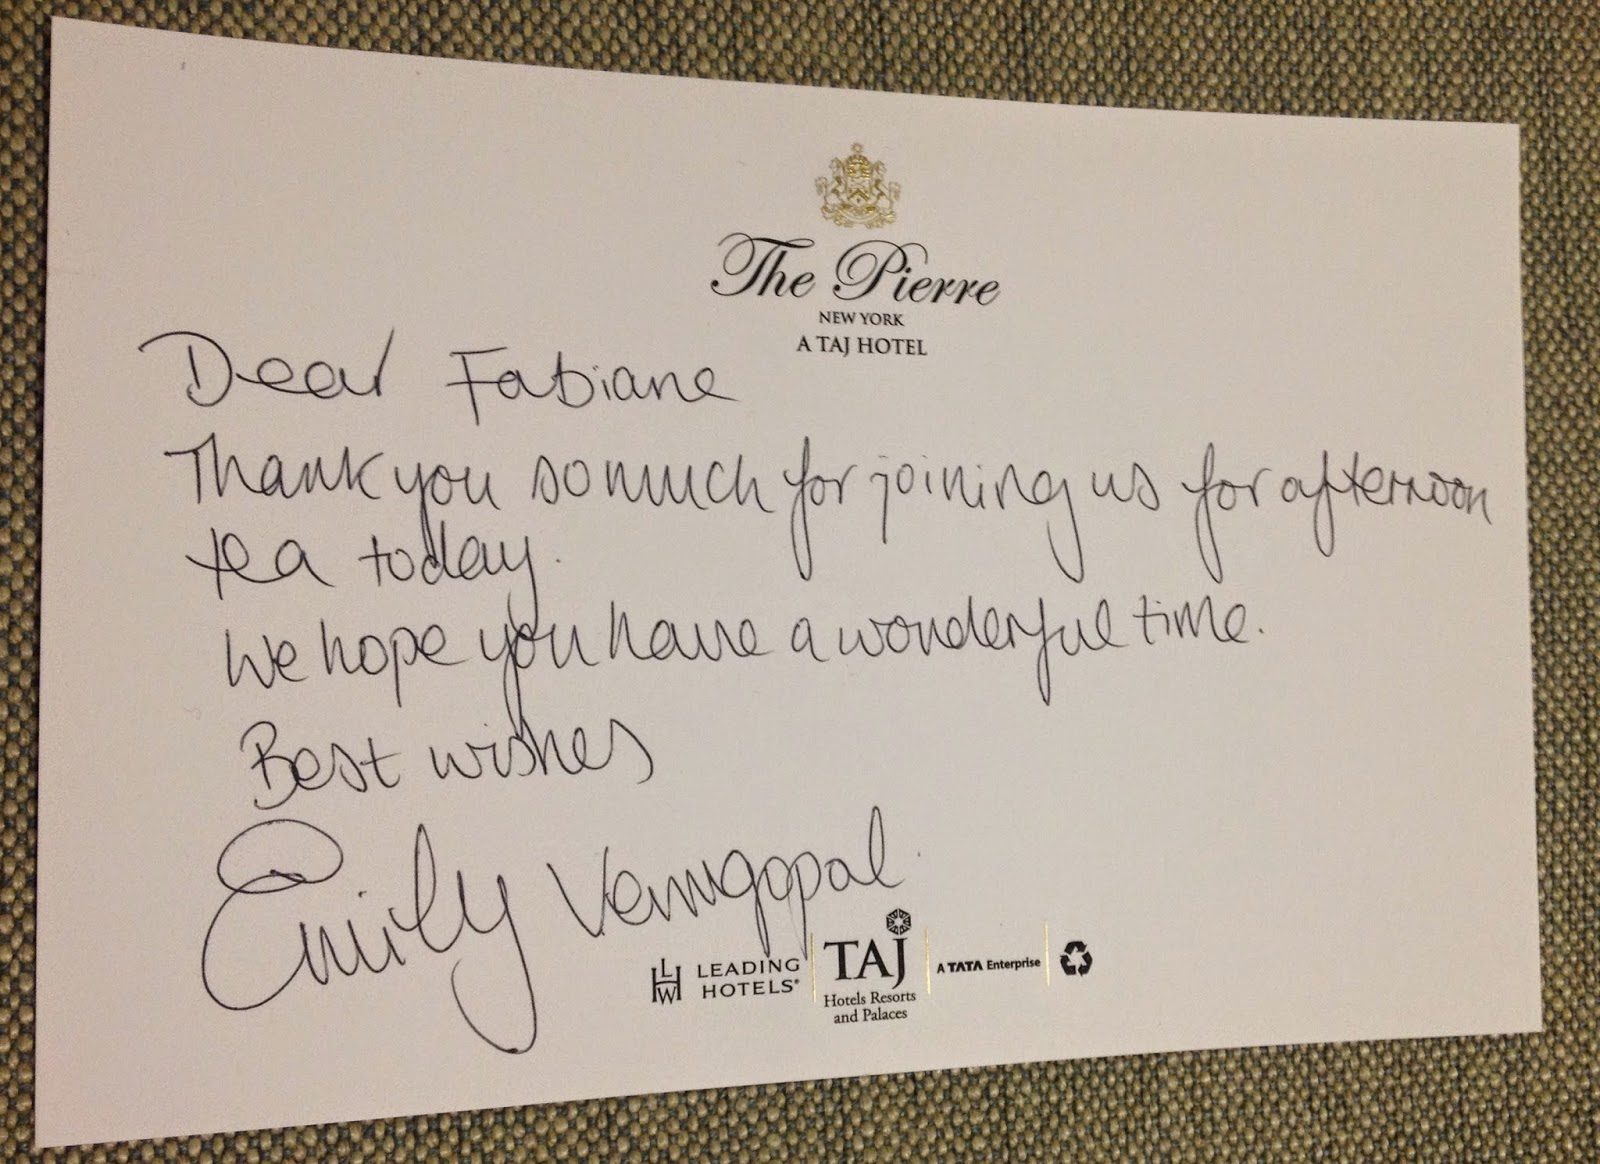 The Pierre
NEW YORK
A TAJ HOTEL
Dear Fabiane
Thank you so much for joining us for afternoon
tea today.
We hope you have a wonderful time.
Best wishes
Emily Venugopal
LHW LEADING HOTELS®
TAJ
Hotels Resorts
and Palaces
A TATA Enterprise